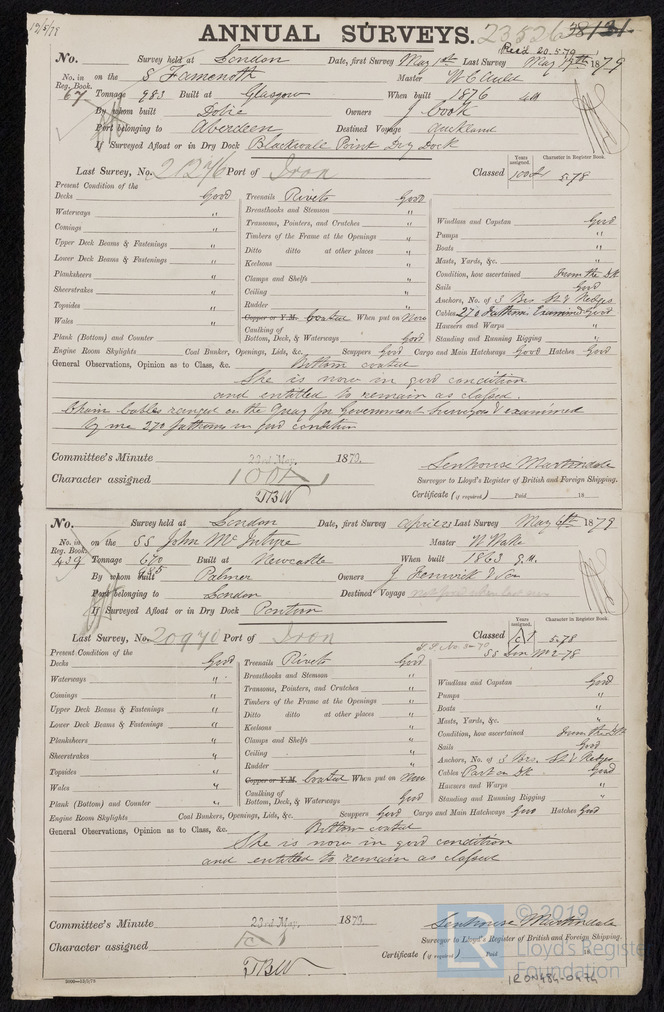 12/5/79
ANNUAL SURVEYS. 23526 28131.
Recd 20.5.79
No. Survey held at London Date, first Survey May 1st Last Survey May 17th 1879
No. in Reg. Book. on the S Famenoth Master W Cauld
67 Tonnage 983 Built at Glasgow When built 1876 4M
By whom built Dobie Owners J Cook
Port belonging to Aberdeen Destined Voyage Auckland
If Surveyed Afloat or in Dry Dock Blackwall Point Dry Dock
Last Survey, No. Port of Iron Classed Years assigned. 100A1 Character in Register Book. 5.78
Present Condition of the
Decks Good
Waterways "
Comings "
Upper Deck Beams & Fastenings "
Lower Deck Beams & Fastenings "
Planksheers "
Sheerstrakes "
Topsides "
Wales "
Plank (Bottom) and Counter "
Treenails Rivets Good
Breasthooks and Stemson "
Transoms, Pointers, and Crutches "
Timbers of the Frame at the Openings "
Ditto ditto at other places "
Keelsons "
Clamps and Shelfs "
Ceiling "
Rudder "
Copper or Y.M. Coated When put on Now
Caulking of Bottom, Deck, & Waterways Good
Windlass and Capstan Good
Pumps "
Boats "
Masts, Yards, &c. "
Condition, how ascertained From the Dk
Sails Good
Anchors, No. of 3 Brs St & Kedges
Cables 270 fathoms Examined Good
Hawsers and Warps "
Standing and Running Rigging "
Engine Room Skylights Coal Bunker, Openings, Lids, &c. Scuppers Good Cargo and Main Hatchways Good Hatches Good
General Observations, Opinion as to Class, &c. Bottom coated
She is now in good condition
and entitled to remain as classed.
Chain Cables ranged on the Quay for Government Surveyor & examined
by me 270 fathoms in good condition
Committee's Minute 23rd May, 1879.
Character assigned 100A1
TBW
Senhouse Martindale
Surveyor to Lloyd's Register of British and Foreign Shipping.
Certificate (if required) Paid 18
No. Survey held at London Date, first Survey April 22 Last Survey May 6th 1879
No. in Reg. Book. on the SS John McIntyre Master W Wake
439 Tonnage 670 685 Built at Newcastle When built 1863 9.M.
By whom built Palmer Owners J Fenwick & Son
Port belonging to London Destined Voyage
If Surveyed Afloat or in Dry Dock Pontoon
Last Survey, No. 20970 Port of Iron Classed Years assigned. Character in Register Book. 5.78
SS Lon No 2-78
Present Condition of the
Decks Good
Waterways "
Comings "
Upper Deck Beams & Fastenings "
Lower Deck Beams & Fastenings "
Planksheers "
Sheerstrakes "
Topsides "
Wales "
Plank (Bottom) and Counter "
Treenails Rivets Good
Breasthooks and Stemson "
Transoms, Pointers, and Crutches "
Timbers of the Frame at the Openings "
Ditto ditto at other places "
Keelsons "
Clamps and Shelfs "
Ceiling "
Rudder "
Copper or Y.M. Coated When put on Now
Caulking of Bottom, Deck, & Waterways Good
Windlass and Capstan Good
Pumps "
Boats "
Masts, Yards, &c. "
Condition, how ascertained From the Dk
Sails Good
Anchors, No. of 3 Brs. St & Kedges
Cables Part on Dk. Good
Hawsers and Warps "
Standing and Running Rigging "
Engine Room Skylights Coal Bunkers, Openings, Lids, &c. Scuppers Good Cargo and Main Hatchways Good Hatches Good
General Observations, Opinion as to Class, &c. Bottom coated
She is now in good condition
and entitled to remain as classed
Committee's Minute 23rd May, 1879.
Character assigned
TBW
Senhouse Martindale
Surveyor to Lloyd's Register of British and Foreign Shipping.
Certificate (if required) Paid
© 2019
LR Lloyd's Register Foundation
IRON484-0474